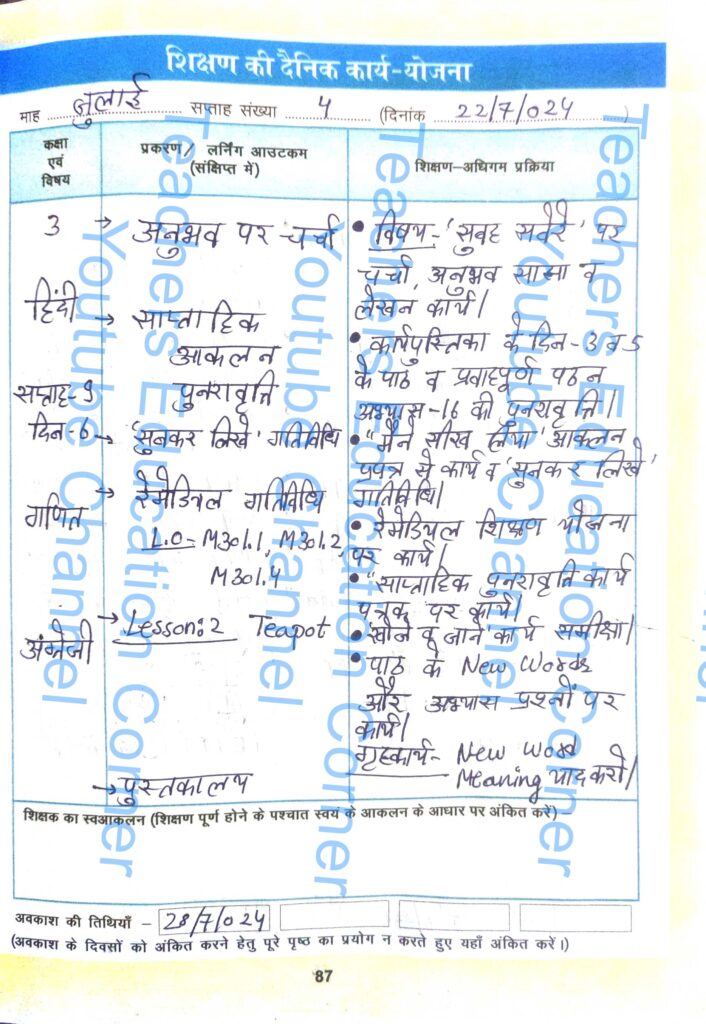 शिक्षण की दैनिक कार्य-योजना
माह जुलाई सप्ताह संख्या 4 (दिनांक 22/7/024 )
कक्षा एवं विषय
प्रकरण/ लर्निंग आउटकम (संक्षिप्त में)
शिक्षण-अधिगम प्रक्रिया
3 → अनुभव पर चर्चा
हिंदी
→ साप्ताहिक
आकलन
सप्ताह-9 पुनरावृत्ति
दिन-6 → 'सुनकर लिखे' गतिविधि
गणित → रेमेडियल गतिविधि
L.O- M301.1, M301.2,
M301.4
अंग्रेजी → Lesson:2 Teapot
→ पुस्तकालय
• विषय- 'सुबह सवेरे' पर
चर्चा, अनुभव साझा व
लेखन कार्य।
• कार्यपुस्तिका के दिन-3 व 5
के पाठ व प्रवाहपूर्ण पठन
अभ्यास-16 की पुनरावृत्ति।
• "मैने सीख लिया" आकलन
प्रपत्र से कार्य व 'सुनकर लिखे'
गतिविधि।
• रेमेडियल शिक्षण योजना
पर कार्य।
• "साप्ताहिक पुनरावृत्ति कार्य
पत्रक पर कार्य।
• खोने व जाने कार्य समीक्षा।
• पाठ के New Words
और अभ्यास प्रश्नों पर
कार्य।
गृहकार्य- New Word
Meaning याद करो।
शिक्षक का स्वआकलन (शिक्षण पूर्ण होने के पश्चात स्वयं के आकलन के आधार पर अंकित करें) -
अवकाश की तिथियाँ - 28/7/024
(अवकाश के दिवसों को अंकित करने हेतु पूरे पृष्ठ का प्रयोग न करते हुए यहाँ अंकित करें।)
87
Teachers Education Corner
Youtube Channel
Teachers Education Corner
Youtube Channel
Teachers Education Corner
Youtube Channel